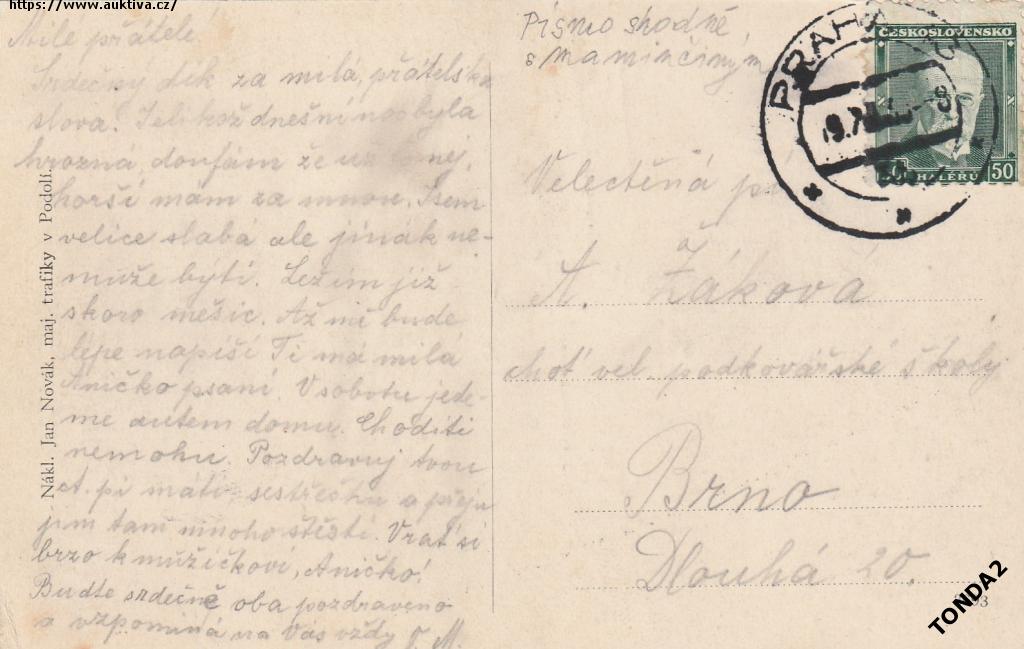 https://www.auktiva.cz/
Milé přátelé!
Srdečný dík za milá, přátelská
slova! Jelikož dnešní noc byla
hrozná, doufám že už
horší mám za mnou. Jsem
velice slabá ale jinák ne-
může býti. Ležím již
skoro měsíc. Až mě bude
lépe napíši Ti má milá
Aničko psaní. V sobotu jede-
me autem domu. Choditi
nemohu. Pozdravuj tvou
ct. pí mati, sestřičku a přeju
jim tam mnoho štěstí. Vrať si
brzo k mužíčkovi, Aničko!
Buďte srdečně oba pozdraveno
a vzpomíná na Vás vždy M.
Nákl. Jan Novák, maj. trafiky v Podolí.
Písmo shodné
s maminčiným
PRAHA
ČESKOSLOVENSKO
50 HALÉŘŮ 50
Velectěná
A. Žáková
choť vel. podkovářské školy
Brno
Dlouhá 20.
TONDA2